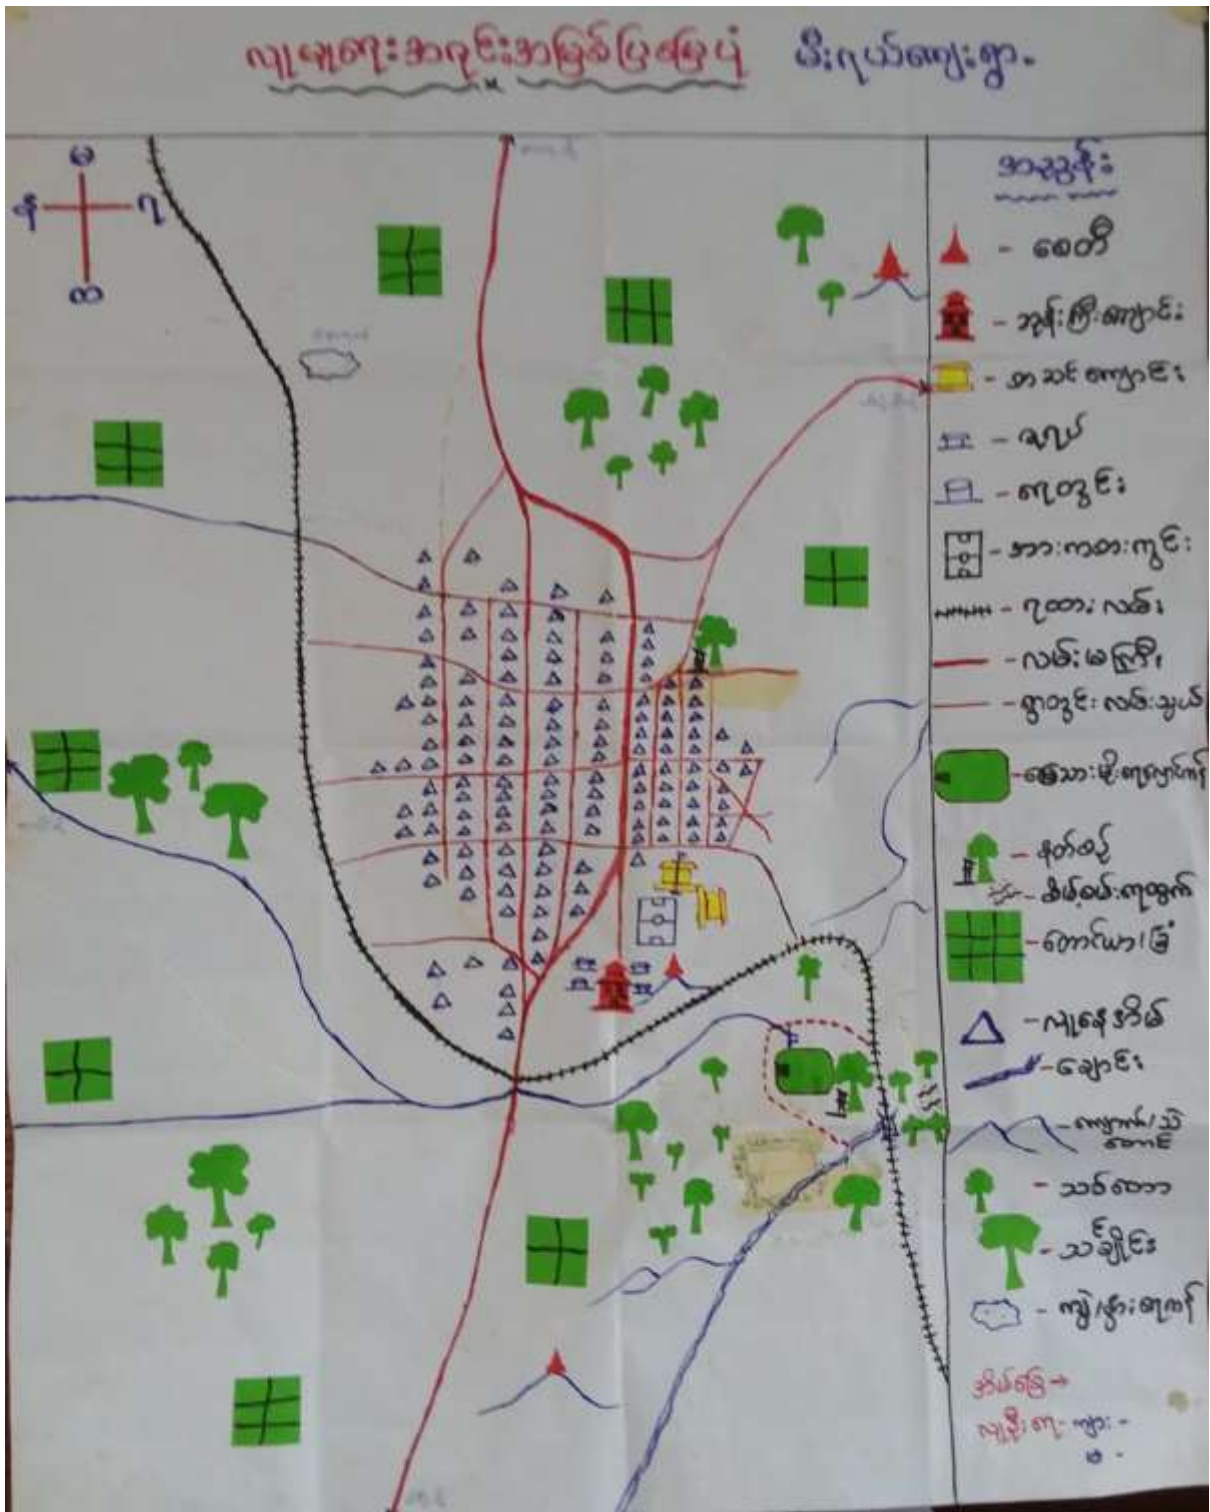 လူမှုရေးအရင်းအမြစ်ပြမြေပုံ မီးရယ်ကျေးရွာ.
မ
န ရ
တ
အညွှန်း
- စေတီ
- ဘုန်းကြီးကျောင်း
- စာသင်ကျောင်း
- ဇရပ်
- ရေတွင်း
- အားကစားကွင်း
- ရထားလမ်း
- လမ်းမကြီး
- ရွာတွင်းလမ်းသွယ်
- နတ်စင်
- စိမ့်စမ်းရေထွက်
- တောင်ယာ/ခြံ
- လူနေအိမ်
- ချောင်း
- ကျောက်/သဲ
တောင်
- သစ်တော
- သင်္ချိုင်း
- ကျွဲ/နွားရေကန်
အိမ်ခြေ →
လူဦးရေ - ကျား -
မ -